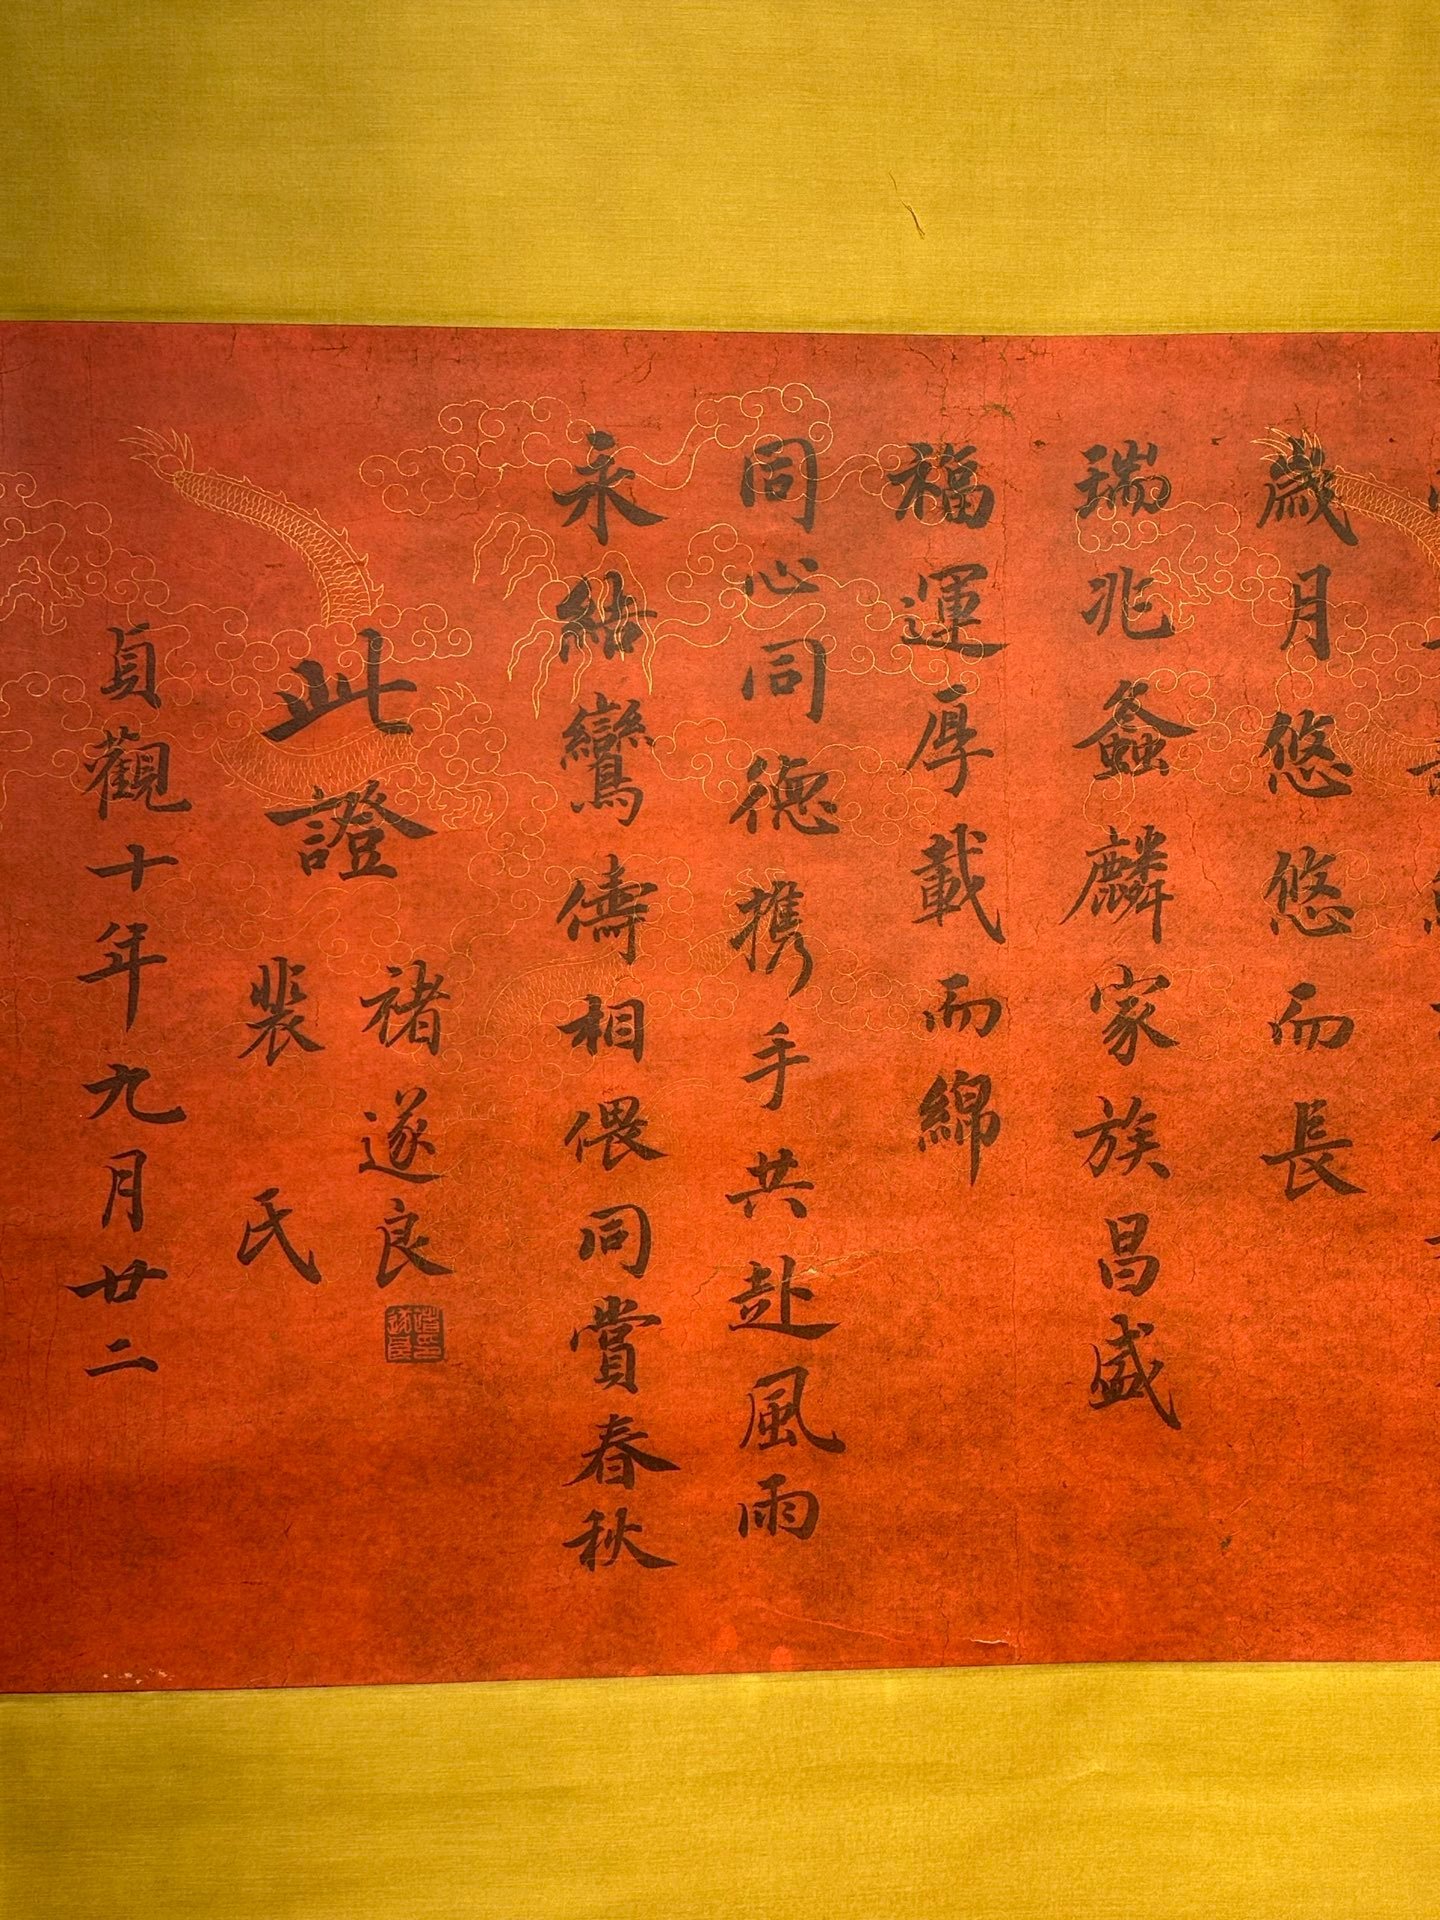 歲月悠悠而長
瑞兆螽麟家族昌盛
福運厚載而綿
同心同德攜手共赴風雨
永結鸞儔相偎同賞春秋
此證
褚遂良
裴氏
貞觀十年九月廿二